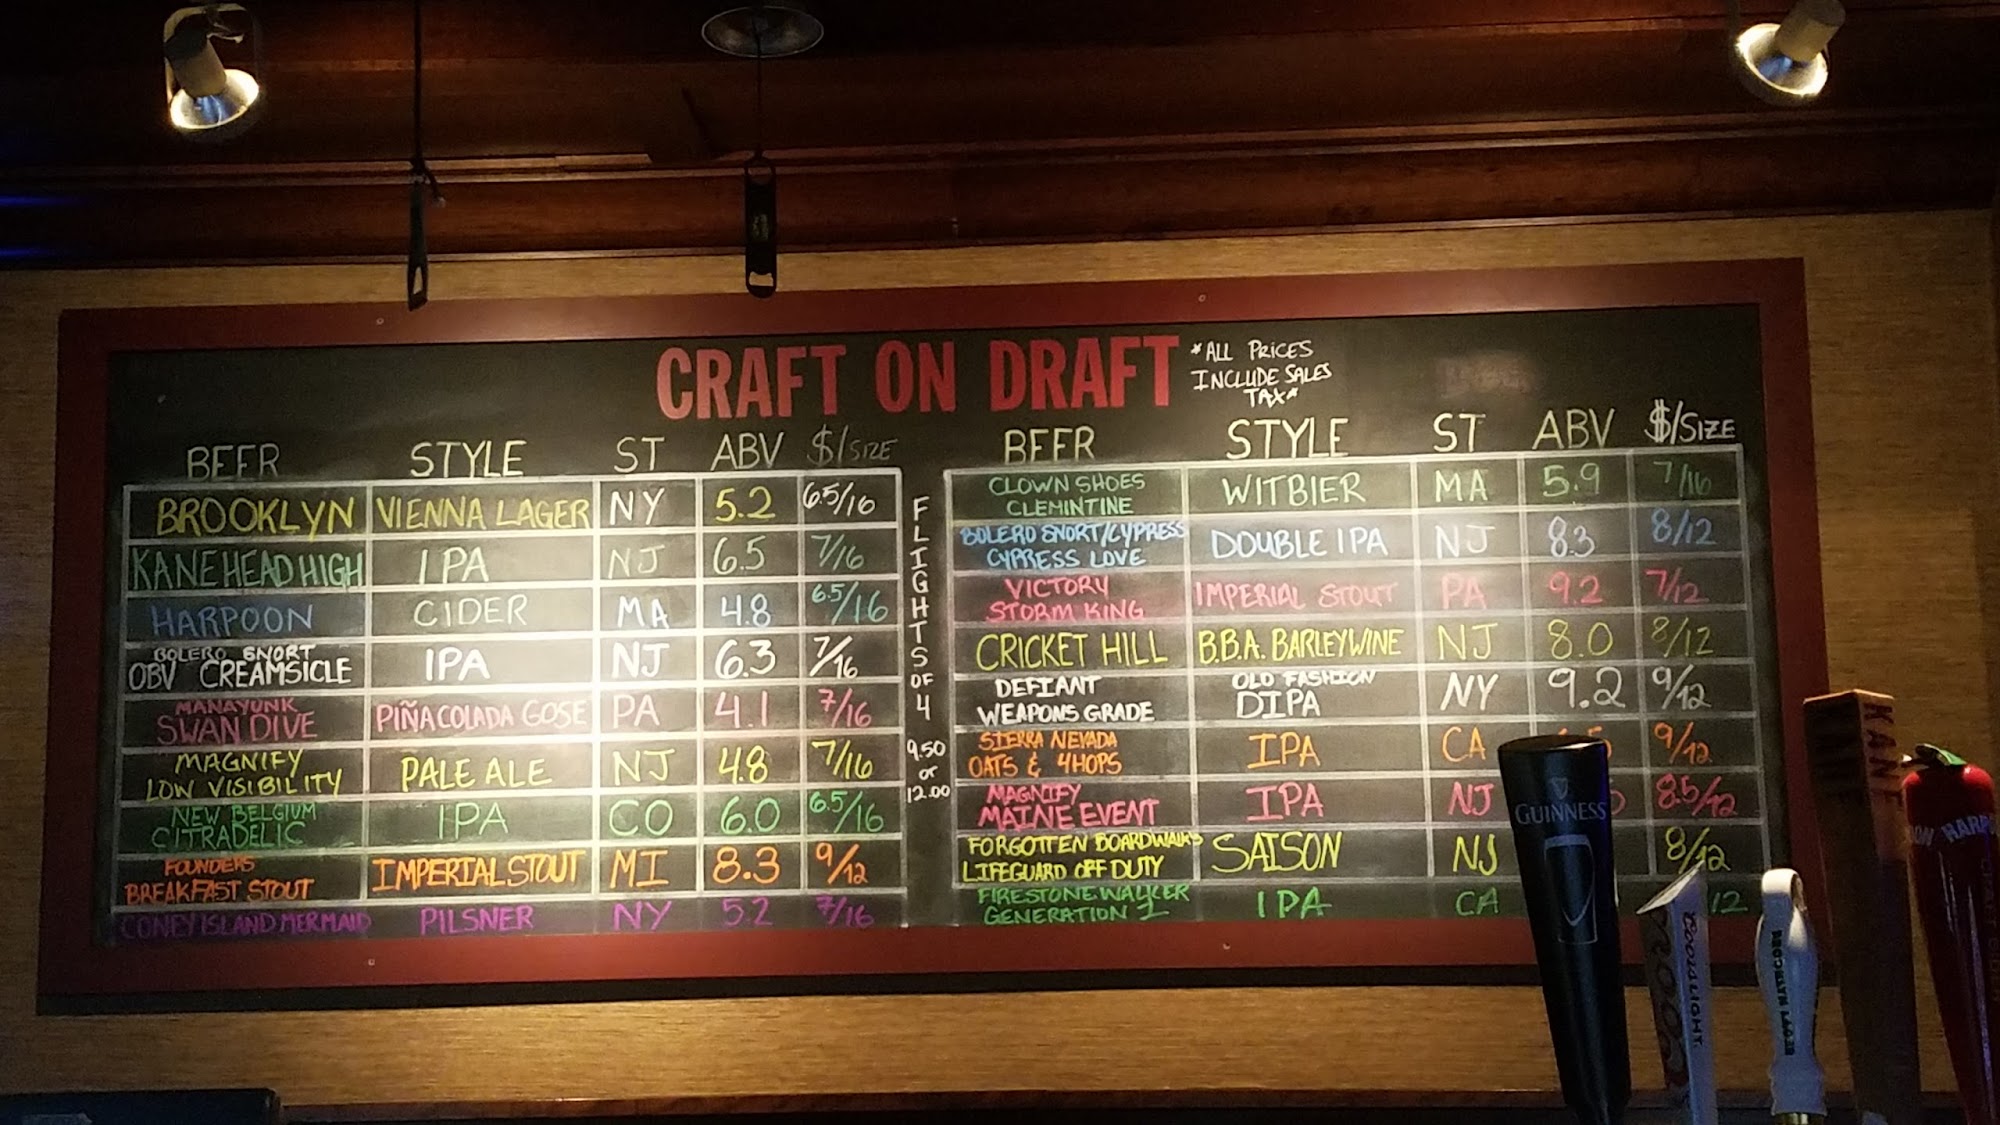 CRAFT ON DRAFT
*ALL PRICES
INCLUDE SALES
TAX*
BEER STYLE ST ABV $/SIZE
BROOKLYN VIENNA LAGER NY 5.2 6.5/16
KANE HEAD HIGH IPA NJ 6.5 7/16
HARPOON CIDER MA 4.8 6.5/16
BOLERO SNORT
OBV CREAMSICLE IPA NJ 6.3 7/16
MANAYUNK
SWAN DIVE PIÑA COLADA GOSE PA 4.1 7/16
MAGNIFY
LOW VISIBILITY PALE ALE NJ 4.8 7/16
NEW BELGIUM
CITRADELIC IPA CO 6.0 6.5/16
FOUNDERS
BREAKFAST STOUT IMPERIAL STOUT MI 8.3 9/12
CONEY ISLAND MERMAID PILSNER NY 5.2 7/16
FLIGHTS
OF
4
9.50
or
12.00
BEER STYLE ST ABV $/SIZE
CLOWN SHOES
CLEMINTINE WITBIER MA 5.9 7/16
BOLERO SNORT/CYPRESS
CYPRESS LOVE DOUBLE IPA NJ 8.3 8/12
VICTORY
STORM KING IMPERIAL STOUT PA 9.2 7/12
CRICKET HILL B.B.A. BARLEYWINE NJ 8.0 8/12
DEFIANT
WEAPONS GRADE OLD FASHION
DIPA NY 9.2 9/12
SIERRA NEVADA
OATS & 4HOPS IPA CA 9/12
MAGNIFY
MAINE EVENT IPA NJ 8.5/12
FORGOTTEN BOARDWALK'S
LIFEGUARD OFF DUTY SAISON NJ 8/12
FIRESTONE WALKER
GENERATION 1 IPA CA 12
GUINNESS
COORS LIGHT
BROOKLYN LAGER
KANE
HARPOON